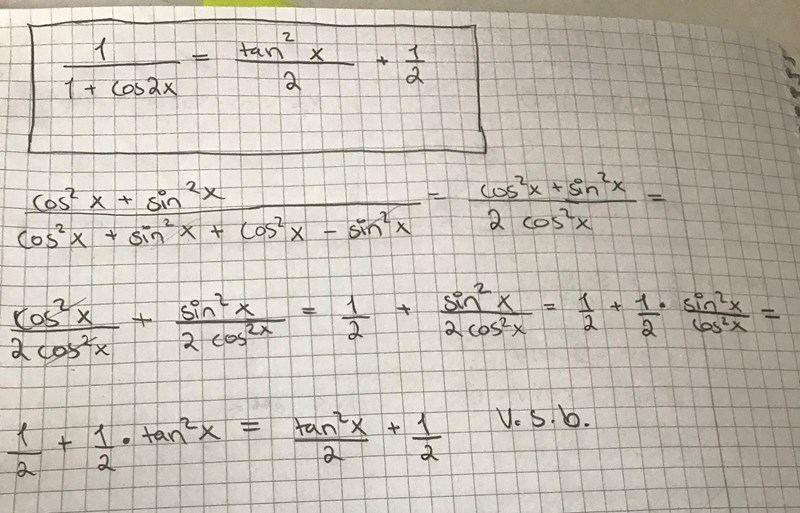 1/(1 + cos2x) = tan² x/2 + 1/2
(cos² x + sin² x)/(cos² x + sin² x + cos² x − sin² x) = (cos²x + sin²x)/(2 cos²x) =
cos²x/(2 cos²x) + sin²x/(2 cos²x) = 1/2 + sin² x/(2 cos²x) = 1/2 + 1/2 · sin²x/cos²x =
1/2 + 1/2 · tan²x = tan²x/2 + 1/2 V.S.b.